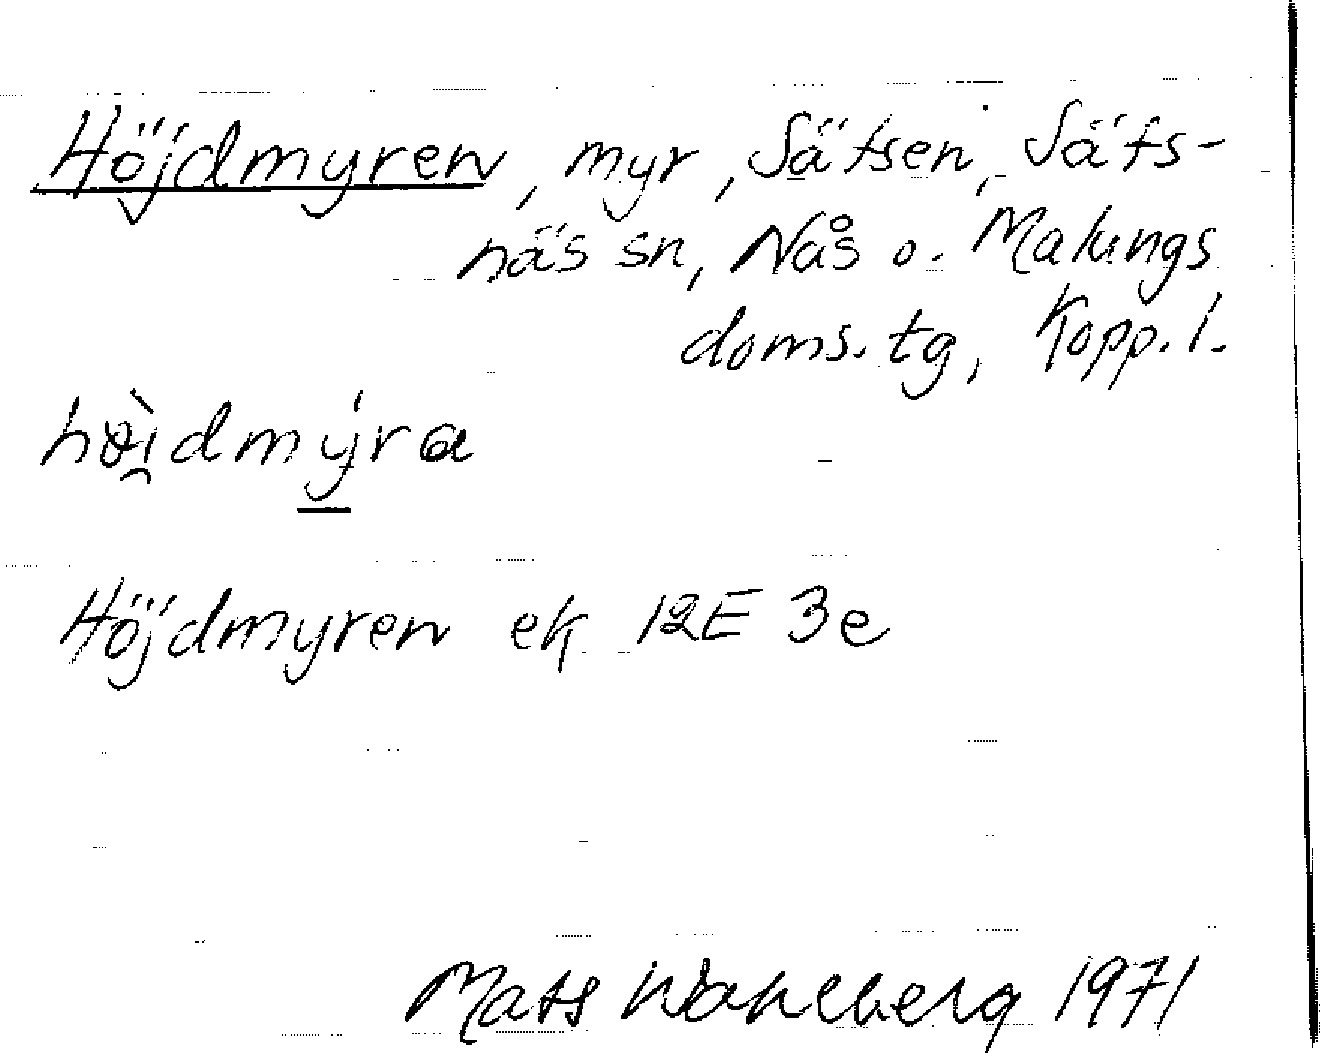 Höjdmyren, myr, Sätsen, Säfs-
näs sn, Nås o. Malungs
doms.tg, Kopp.l.
höì̯dmýra
Höjdmyren ek 12E 3e
Mats Wahlberg 1971